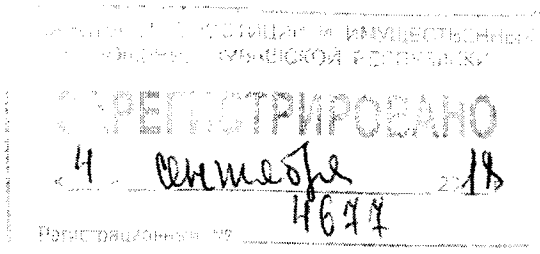 ЮСТИЦИИ И ИМУЩЕСТВЕННЫХ
ЧУВАШСКОЙ РЕСПУБЛИКИ
ЗАРЕГИСТРИРОВАНО
4 сентября 2018
4677
Регистрационный №